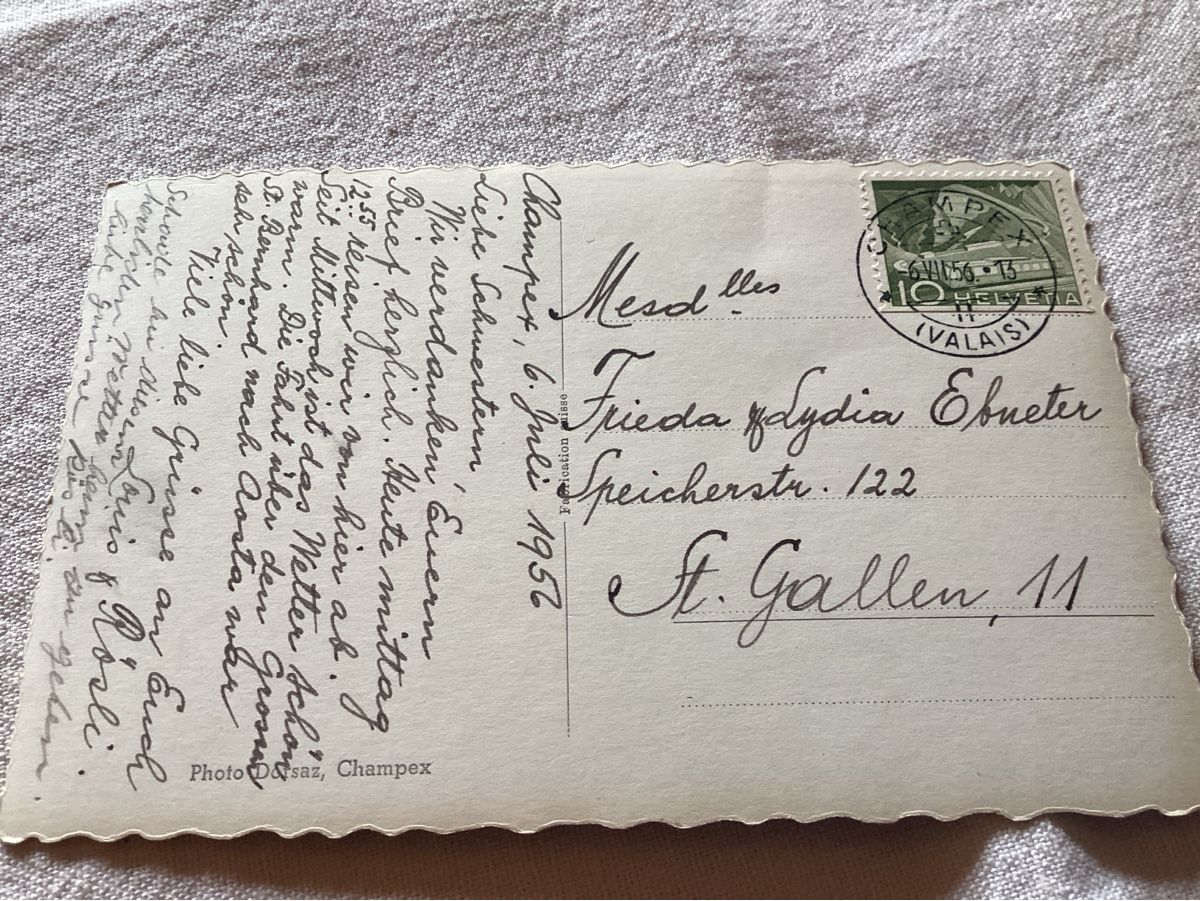 Champex, 6. Juli 1956
Liebe Schwestern
Wir verdanken Euern
Brief herzlich. Heute mittag
12.55 reisen wir von hier ab.
Seit Mittwoch ist das Wetter schön
warm. Die Fahrt über den Grossen
St. Bernhard nach Aosta war
sehr schön.
Viele liebe Grüsse an Euch
Louis & Rösli.
Photo Darsaz, Champex
Fabrication Suisse
Mesdlles
Frieda & Lydia Ebneter
Speicherstr. 122
St. Gallen, 11
CHAMPEX
6 VII 56 • 13
11
(VALAIS)
10 HELVETIA